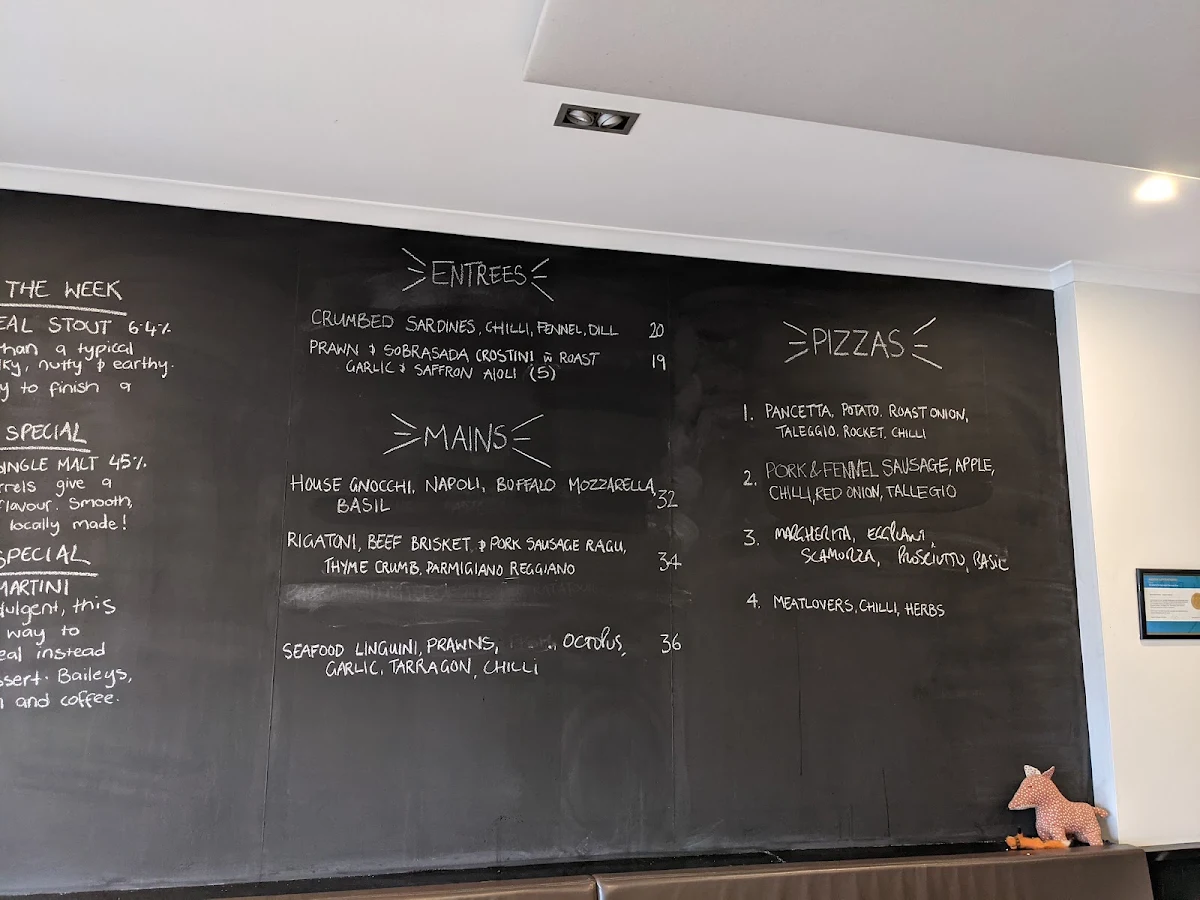 THE WEEK
EAL STOUT 6.4%
han a typical
ky, nutty & earthy.
y to finish a
SPECIAL
INGLE MALT 45%.
rrels give a
flavour. Smooth,
locally made!
SPECIAL
MARTINI
dulgent, this
way to
eal instead
ssert. Baileys,
and coffee.
ENTREES
CRUMBED SARDINES, CHILLI, FENNEL, DILL 20
PRAWN & SOBRASADA CROSTINI w ROAST 19
GARLIC & SAFFRON AIOLI (5)
MAINS
HOUSE GNOCCHI, NAPOLI, BUFFALO MOZZARELLA, 32
BASIL
RIGATONI, BEEF BRISKET & PORK SAUSAGE RAGU, 34
THYME CRUMB, PARMIGIANO REGGIANO
SEAFOOD LINGUINI, PRAWNS, OCTOPUS, 36
GARLIC, TARRAGON, CHILLI
PIZZAS
1. PANCETTA, POTATO, ROAST ONION,
TALEGGIO, ROCKET, CHILLI
2. PORK & FENNEL SAUSAGE, APPLE,
CHILLI, RED ONION, TALLEGIO
3. MARGHERITA, EGGPLANT,
SCAMORZA, PROSCIUTTO, BASIL
4. MEATLOVERS, CHILLI, HERBS